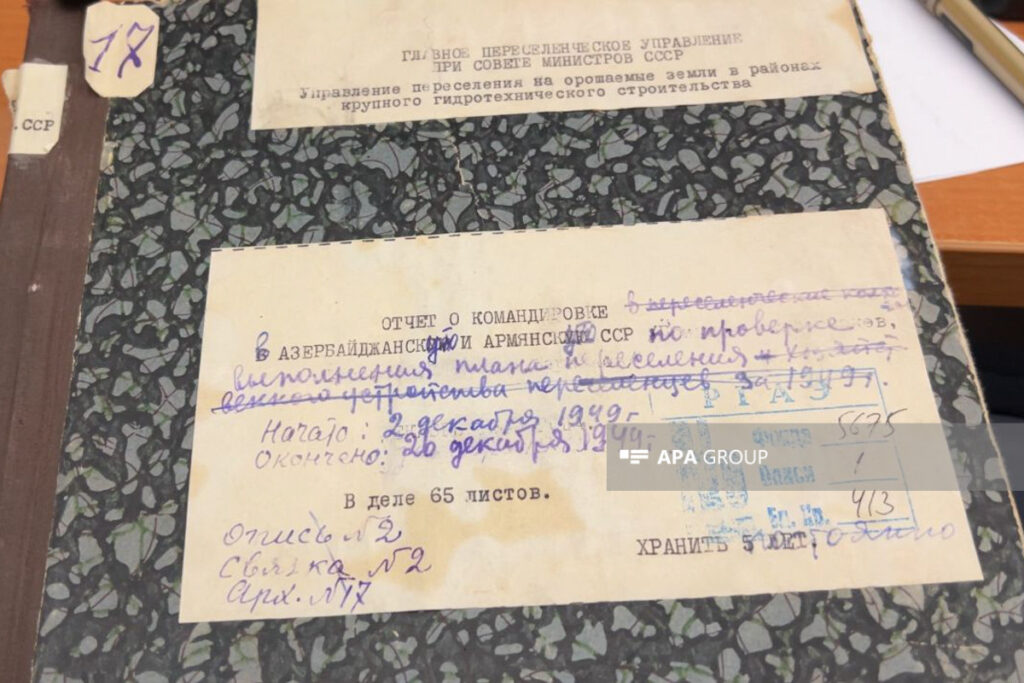 17
.ССР
ГЛАВНОЕ ПЕРЕСЕЛЕНЧЕСКОЕ УПРАВЛЕНИЕ
ПРИ СОВЕТЕ МИНИСТРОВ СССР
Управление переселения на орошаемые земли в районах
крупного гидротехнического строительства
ОТЧЕТ О КОМАНДИРОВКЕ в переселенческие
В АЗЕРБАЙДЖАНСКУЮ И АРМЯНСКУЮ ССР по проверке
выполнения плана переселения и хозяйст
венного устройства переселенцев за 1949 г.
РГАЭ
Начато: 2 декабря 1949 г
Окончено: 26 декабря 1949 г
Фонда 5675
APA GROUP
Описи 1
В деле 65 листов.
Ед. Хр. 413
ХРАНИТЬ 5 ЛЕТ
Опись №2
Связка №2
Арх. №17